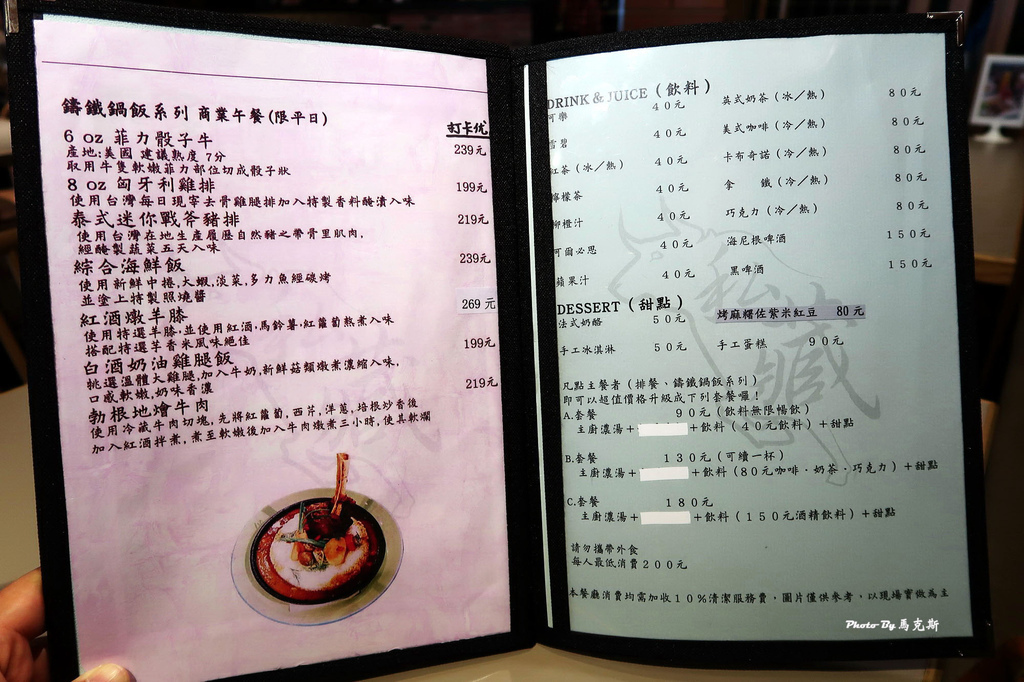 鑄鐵鍋飯系列 商業午餐(限平日)
打卡优
6 oz 菲力骰子牛 239元
產地:美國 建議熟度 7分
取用牛隻軟嫩菲力部位切成骰子狀
8 oz 匈牙利雞排 199元
使用台灣每日現宰去骨雞腿排加入特製香料醃漬入味
泰式迷你戰斧豬排 219元
使用台灣在地生產履歷自然豬之帶骨里肌肉,
經醃製蔬菜五天入味
綜合海鮮飯 239元
使用新鮮中捲,大蝦,淡菜,多力魚經碳烤
並塗上特製照燒醬
紅酒燉羊膝 269元
使用特選羊膝,並使用紅酒,馬鈴薯,紅蘿蔔熬煮入味
搭配特選芋香米風味絕佳
白酒奶油雞腿飯 199元
挑選溫體大雞腿,加入牛奶,新鮮菇類燉煮濃縮入味,
口感軟嫩,奶味香濃
勃根地燴牛肉 219元
使用冷藏牛肉切塊,先將紅蘿蔔,西芹,洋蔥,培根炒香後
加入紅酒拌煮,煮至軟嫩後加入牛肉燉煮三小時,使其軟爛
DRINK & JUICE (飲料)
可樂 40元
雪碧 40元
紅茶(冰／熱) 40元
檸檬茶 40元
柳橙汁 40元
可爾必思 40元
蘋果汁 40元
英式奶茶(冰／熱) 80元
美式咖啡(冷／熱) 80元
卡布奇諾(冷／熱) 80元
拿 鐵(冷／熱) 80元
巧克力(冷／熱) 80元
海尼根啤酒 150元
黑啤酒 150元
DESSERT (甜點)
法式奶酪 50元
烤麻糬佐紫米紅豆 80元
手工冰淇淋 50元
手工蛋糕 90元
凡點主餐者(排餐、鑄鐵鍋飯系列)
即可以超值價格升級成下列套餐囉!
A.套餐 90元(飲料無限暢飲)
主廚濃湯+ +飲料(40元飲料)+甜點
B.套餐 130元(可續一杯)
主廚濃湯+ +飲料(80元咖啡．奶茶．巧克力)+甜點
C.套餐 180元
主廚濃湯+ +飲料(150元酒精飲料)+甜點
請勿攜帶外食
每人最低消費200元
本餐廳消費均需加收10%清潔服務費．圖片僅供參考．以現場實做為主
私藏
Photo By 馬克斯